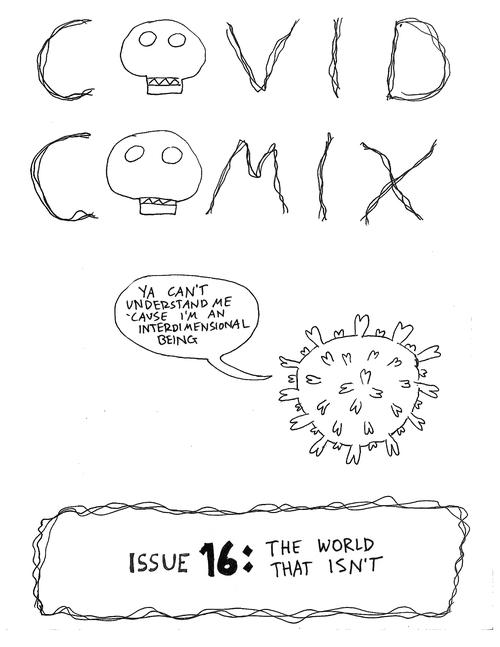 COVID
COMIX
YA CAN'T
UNDERSTAND ME
'CAUSE I'M AN
INTERDIMENSIONAL
BEING
ISSUE 16: THE WORLD
THAT ISN'T